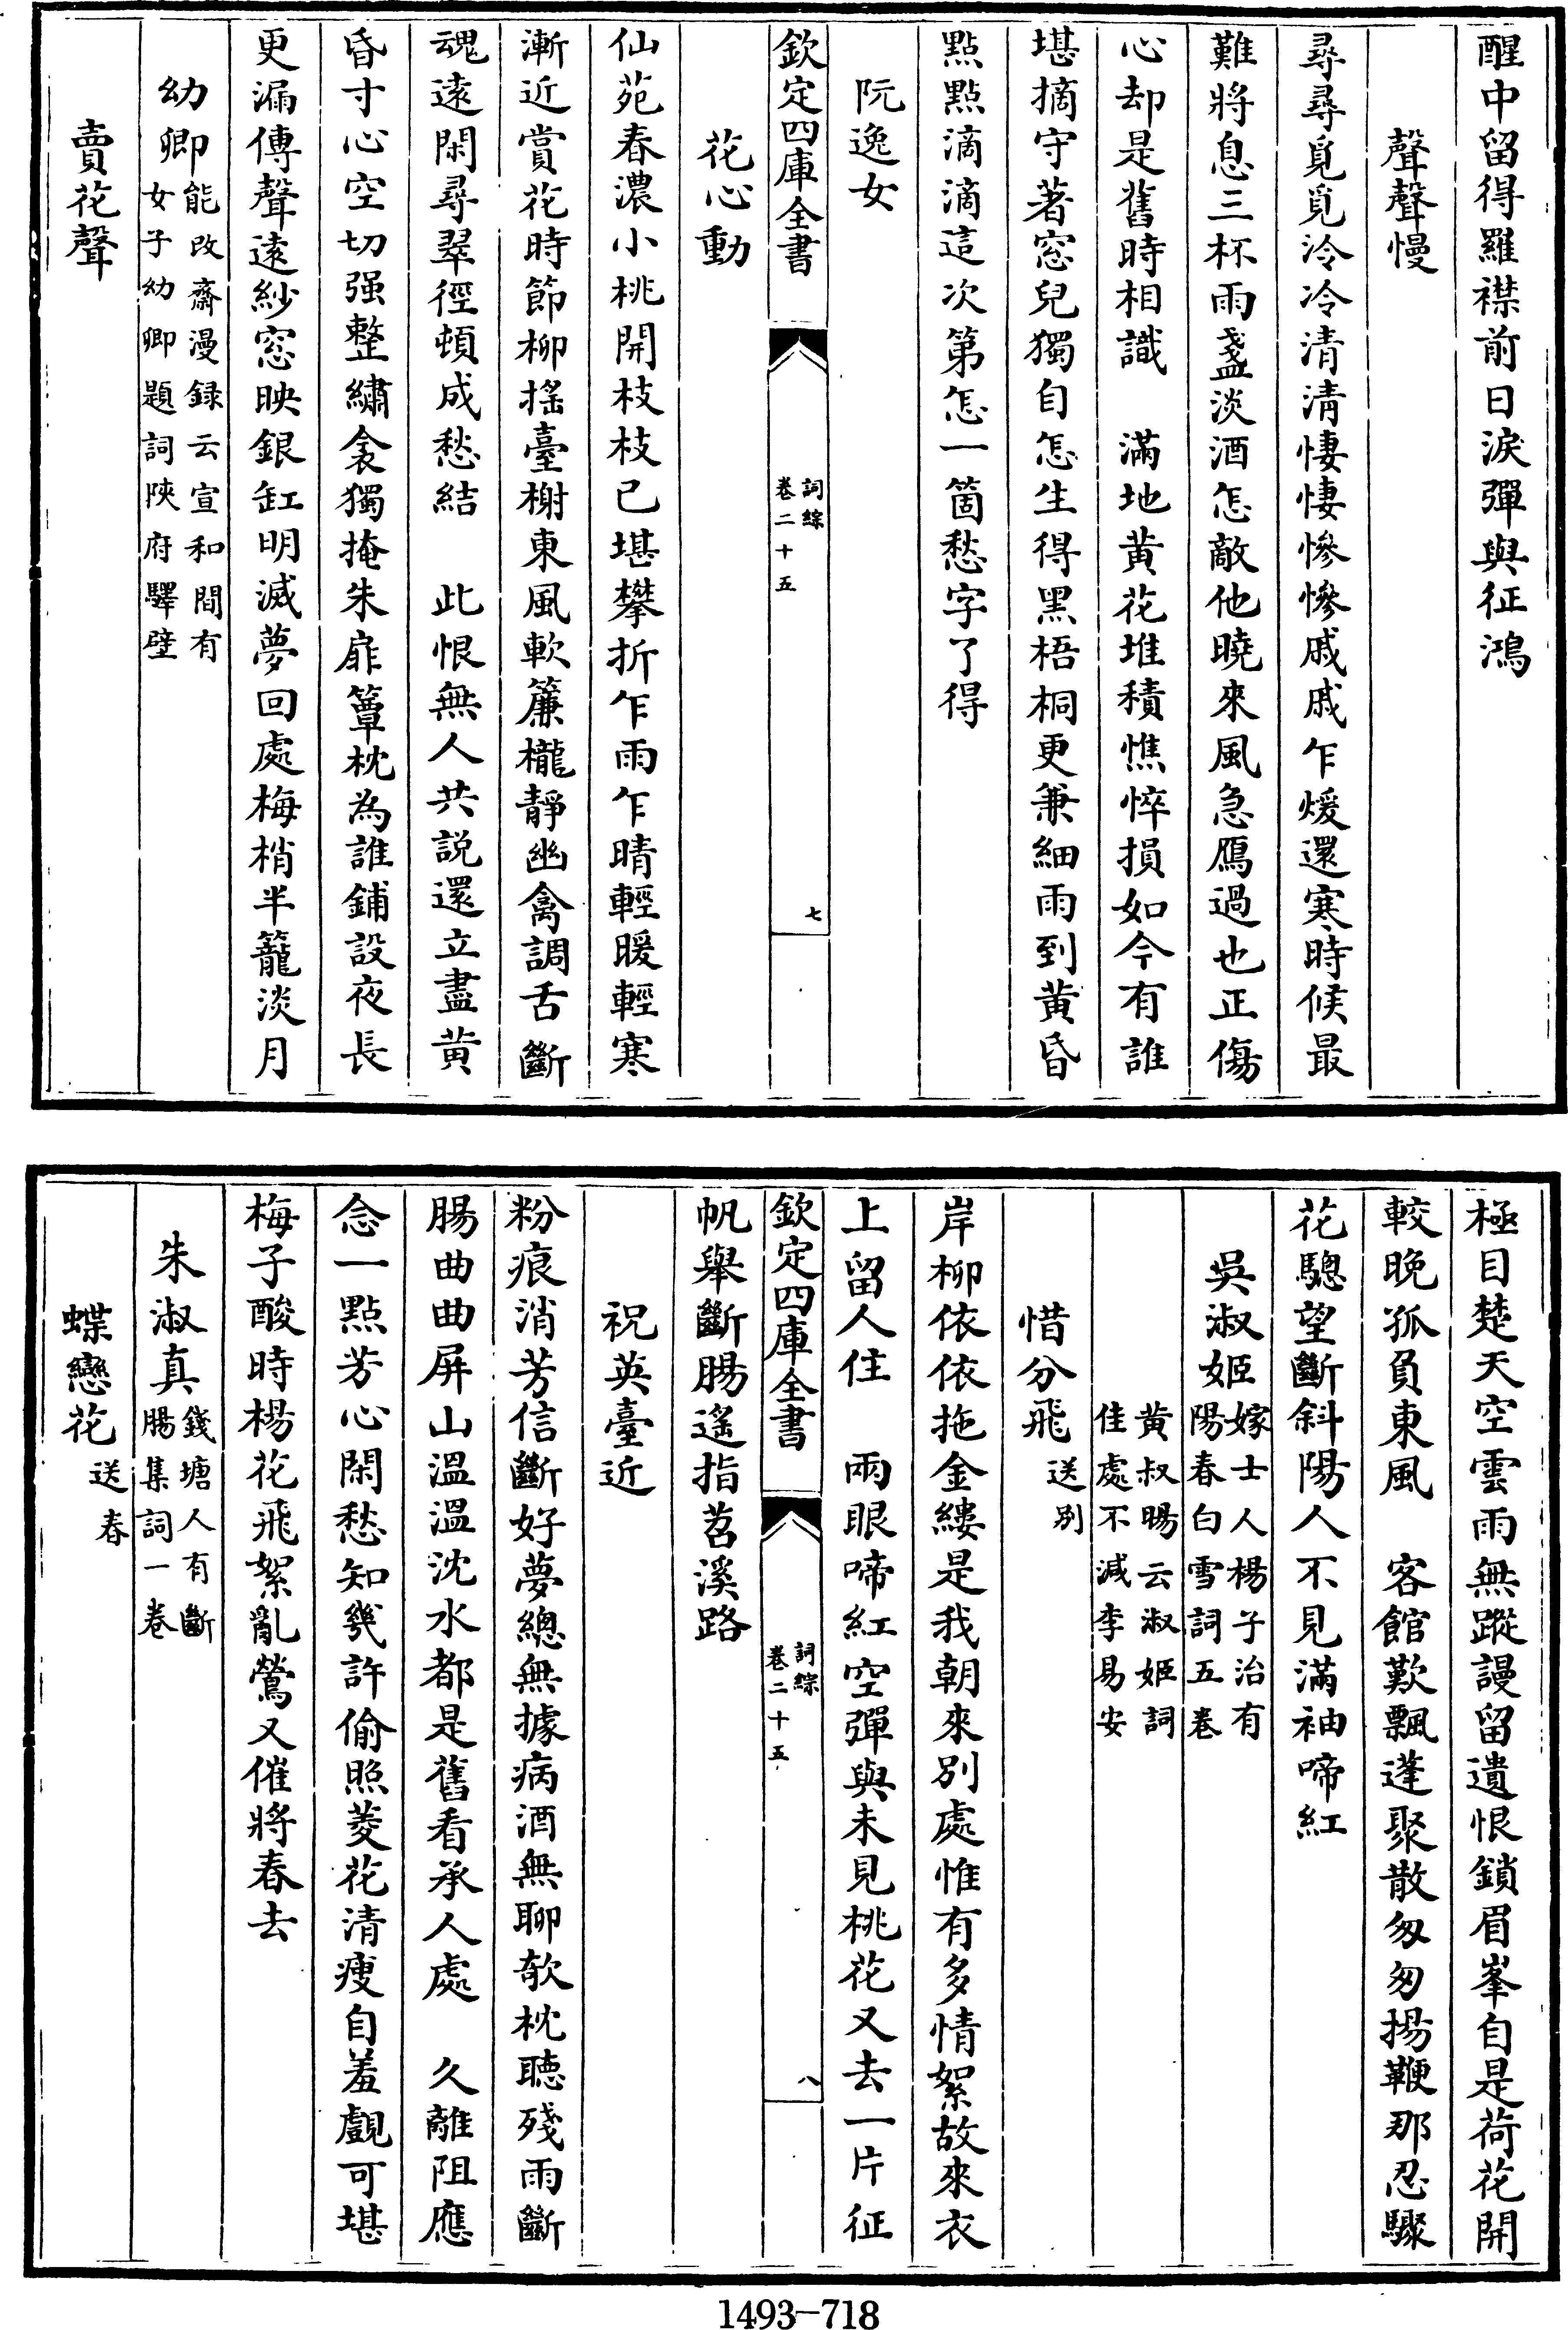 醒中留得羅襟前日淚彈與征鴻
聲聲慢
尋尋覓覓泠泠清清悽悽慘慘戚戚乍煖還寒時候最
難將息三杯兩盞淡酒怎敵他曉來風急鴈過也正傷
心却是舊時相識　滿地黄花堆積憔悴損如今有誰
堪摘守著窓兒獨自怎生得黑梧桐更兼細雨到黄昏
點點滴滴這次第怎一箇愁字了得
阮逸女
欽定四庫全書
詞綜
卷二十五
七
花心動
仙苑春濃小桃開枝枝已堪攀折乍雨乍晴輕暖輕寒
漸近賞花時節柳揺臺榭東風軟簾櫳靜幽禽調舌斷
魂遠閑尋翠徑頓成愁結　此恨無人共説還立盡黄
昏寸心空切强整繡衾獨掩朱扉簟枕為誰鋪設夜長
更漏傳聲遠紗窓映銀缸明滅夢回處梅梢半籠淡月
幼卿能改齋漫録云宣和間有
女子幼卿題詞陜府驛壁
賣花聲
極目楚天空雲雨無蹤謾留遺恨鎖眉峯自是荷花開
較晚孤負東風　客館歎飄蓬聚散匆匆揚鞭那忍驟
花驄望斷斜陽人不見滿袖啼紅
吳淑姬嫁士人楊子治有
陽春白雪詞五卷
黄叔暘云淑姬詞
佳處不減李易安
惜分飛送别
岸柳依依拖金縷是我朝來别處惟有多情絮故來衣
上留人住　兩眼啼紅空彈與未見桃花又去一片征
欽定四庫全書
詞綜
卷二十五
八
帆舉斷腸遥指苕溪路
祝英臺近
粉痕消芳信斷好夢總無據病酒無聊欹枕聽殘雨斷
腸曲曲屏山溫溫沈水都是舊看承人處　久離阻應
念一點芳心閑愁知幾許偷照菱花清瘦自羞覷可堪
梅子酸時楊花飛絮亂鶯又催將春去
朱淑真錢塘人有斷
腸集詞一卷
蝶戀花送春
1493-718